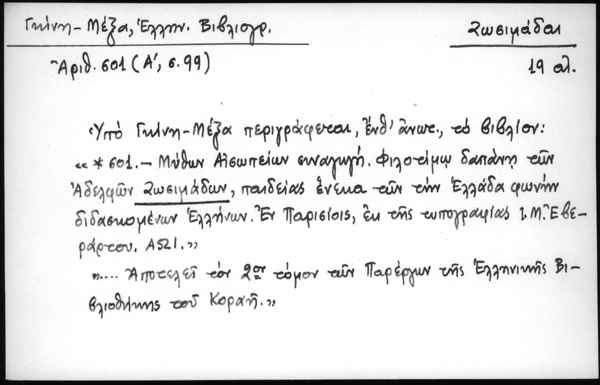 Γκίνη-Μέξα, Ἑλλην. Βιβλιογρ.
Ζωσιμάδαι
Ἀριθ. 601 (Α', σ. 99)
19 αἰ.
Ὑπό Γκίνη-Μέξα περιγράφεται, ἔνθ' ἄνωτ., τό βιβλίον:
« * 601. — Μύθων Αἰσωπείων συναγωγή. Φιλοτίμῳ δαπάνῃ τῶν
Ἀδελφῶν Ζωσιμάδων, παιδείας ἕνεκα τῶν τήν Ἑλλάδα φωνήν
διδασκομένων Ἑλλήνων. Ἐν Παρισίοις, ἐκ τῆς τυπογραφίας Ι. Μ. Ἐβε-
ράρτου. ΑΩΙ. »
».... Ἀποτελεῖ τόν 2ον τόμον τῶν Παρέργων τῆς Ἑλληνικῆς Βι-
βλιοθήκης τοῦ Κοραῆ. »